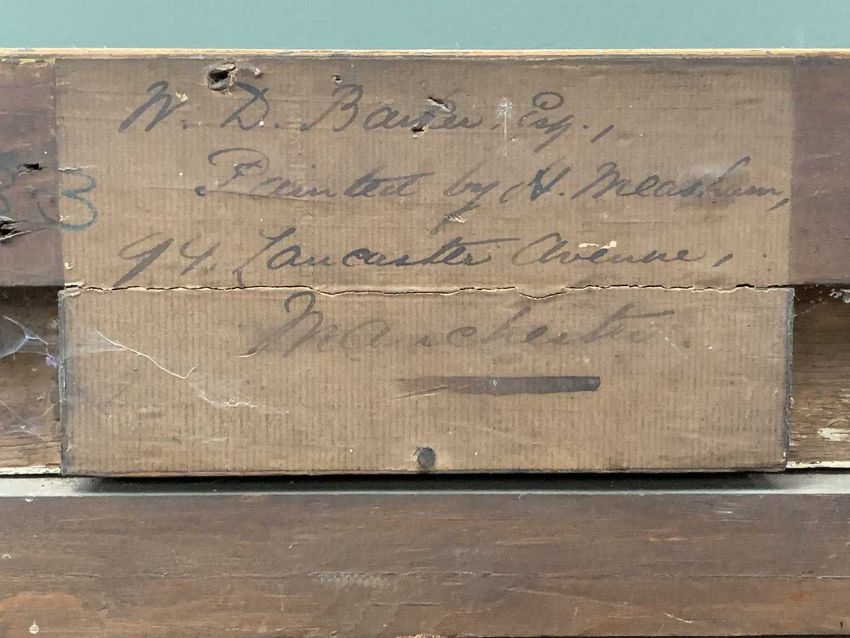 W. D. Barker, Esq.,
Painted by H. Measham,
94. Lancaster Avenue,
Manchester.
33